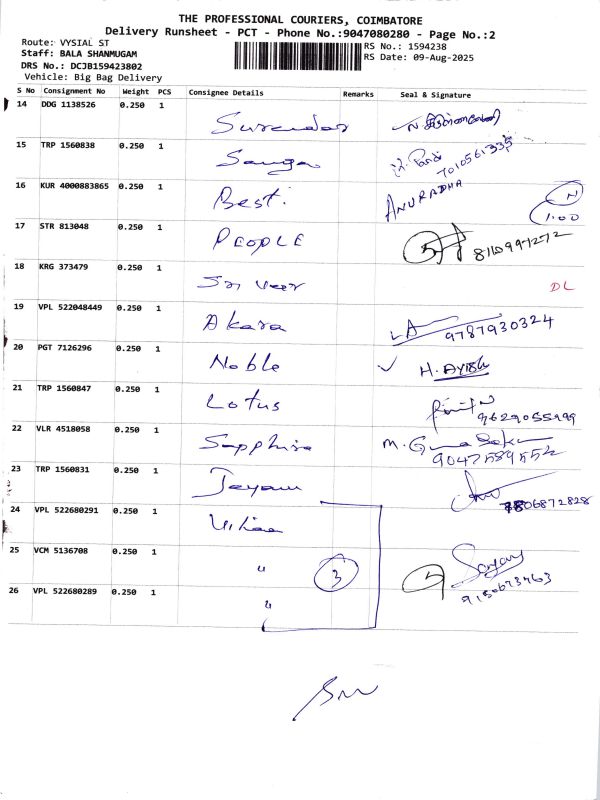 THE PROFESSIONAL COURIERS, COIMBATORE
Delivery Runsheet - PCT - Phone No.:9047080280 - Page No.:2
Route: VYSIAL ST
RS No.: 1594238
Staff: BALA SHANMUGAM
RS Date: 09-Aug-2025
DRS No.: DCJB159423802
Vehicle: Big Bag Delivery
S No Consignment No Weight PCS Consignee Details Remarks Seal & Signature
14 DDG 1138526 0.250 1 Surendar
15 TRP 1560838 0.250 1 Sanga 7010561335
16 KUR 4000883865 0.250 1 Best. ANURADHA N 1.00
17 STR 813048 0.250 1 PEOPLE 8110991272
18 KRG 373479 0.250 1 Sri veer DL
19 VPL 522048449 0.250 1 Akara 9787930324
20 PGT 7126296 0.250 1 Noble ✓ H. AYISH
21 TRP 1560847 0.250 1 Lotus 9629055999
22 VLR 4518058 0.250 1 Sapphire M. Gunasekar 9047589552
23 TRP 1560831 0.250 1 Jeyam 7806872828
24 VPL 522680291 0.250 1
25 VCM 5136708 0.250 1 " 3 Sanjay 9150673463
26 VPL 522680289 0.250 1 "